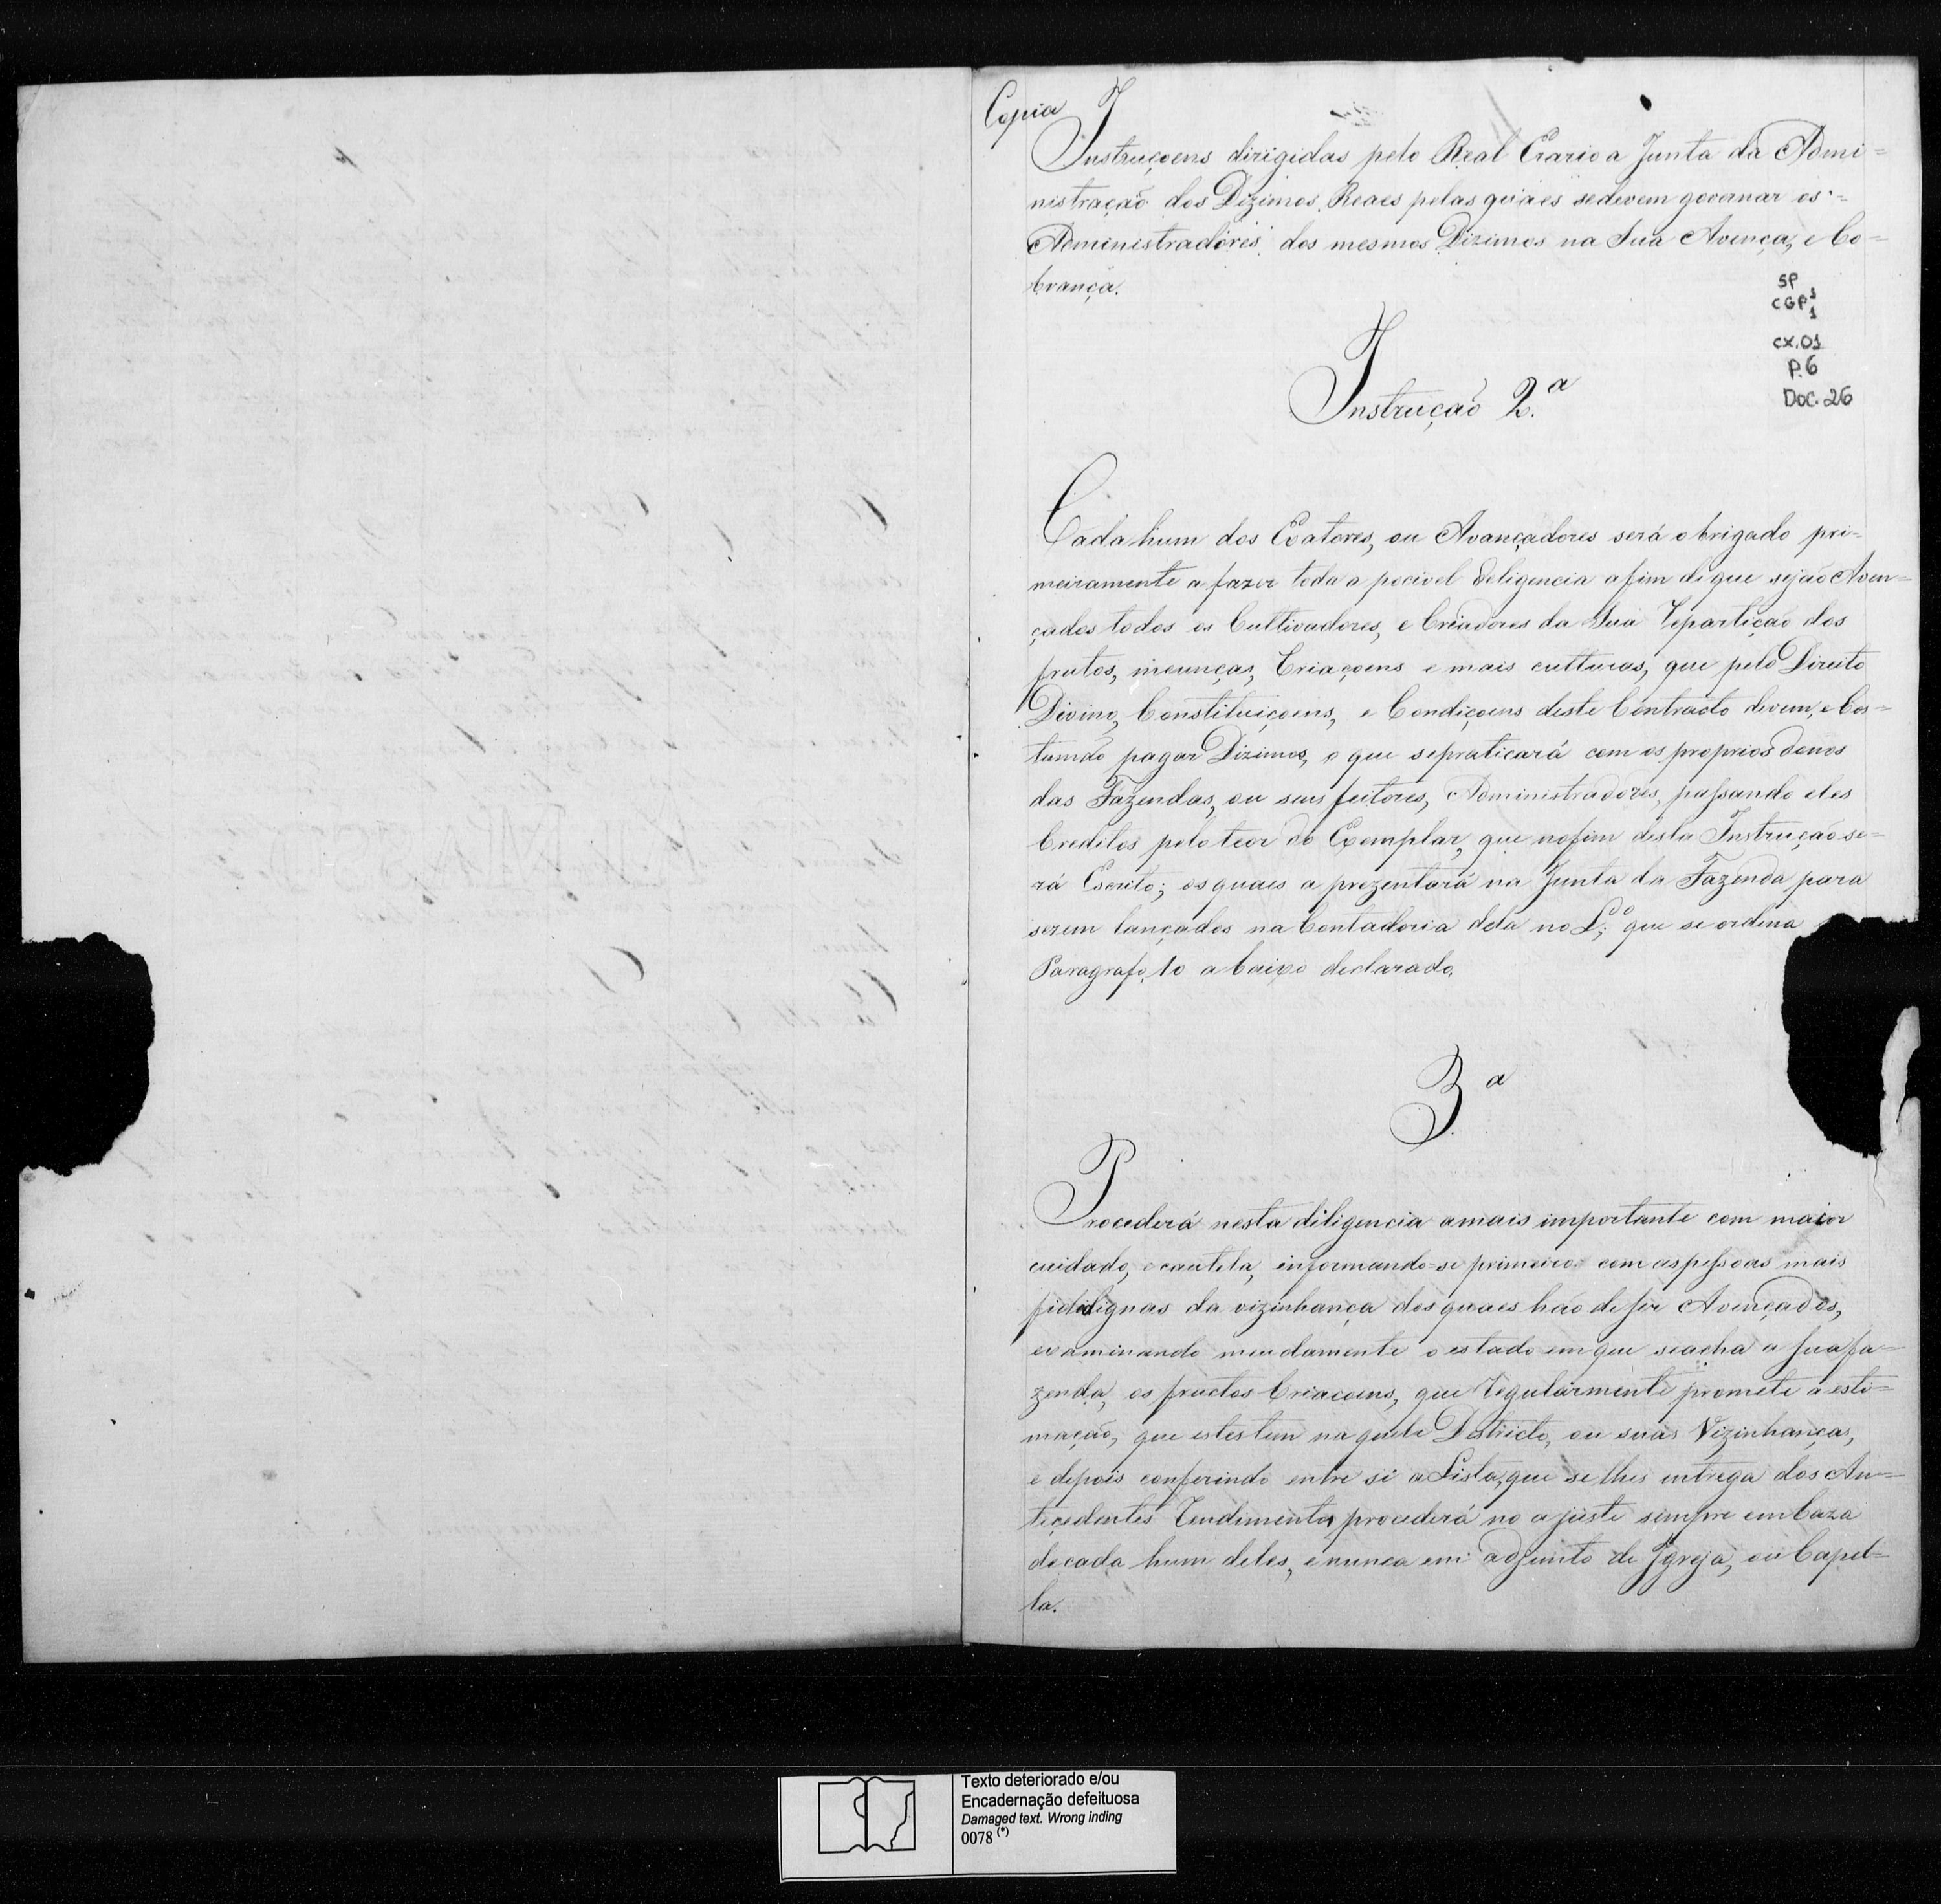 Copia
Instruçoens dirigidas pelo Real Erario a Junta da Admi=
nistração dos Dizimos Reaes pelas quaes sedevem governar os=
Administradores dos mesmos Dizimos na Sua Avença, e Co=
brança.
SP
CGP 1
1
cx.01
P.6
Doc. 26
Instrução 2.ª
Cada hum dos Exatores, ou Avançadores será obrigado pri=
meiramente a fazer toda a pocivel deligencia afim de que sejão Aven=
çados todos os Cultivadores, e Criadores da Sua Repartição dos
frutos, meunças, Criaçoens e mais culturas, que pelo Direito
Divino, Constituiçoens, e Condiçoens deste Contracto devem, e Cos=
tumão pagar Dizimos, o que sepraticará com os proprios donos
das Fazendas, ou seus feitores, Administradores, passando eles
Creditos pelo teor do Exemplar, que nofim desta Instrução se=
rá Escrito; os quaes a prezentará na Junta da Fazenda para
serem lançados na Contadoria dela no L.º; que se ordina
Paragrafo 10 a baixo declarado.
3.ª
Procederá nesta diligencia amais importante com maior
cuidado, e cautela, informando-se primeiro com aspessoas mais
fidedignas da vizinhança dos quaes hão de ser Avençados,
examinando meudamente o estado em que seacha a sua fa=
zenda, os fructos Criacoens, que Regularmente promete a esti=
mação, que estes tem naquele Districto, ou suas Vizinhanças,
e depois conferindo entre si a Lista, que se lhes entrega dos An=
tecedentes Rendimentos procederá no ajuste sempre em Caza
decada hum deles, e nunca em adjunto de Igreja, ou Capel=
la.
Texto deteriorado e/ou
Encadernação defeituosa
Damaged text. Wrong inding
0078 (*)